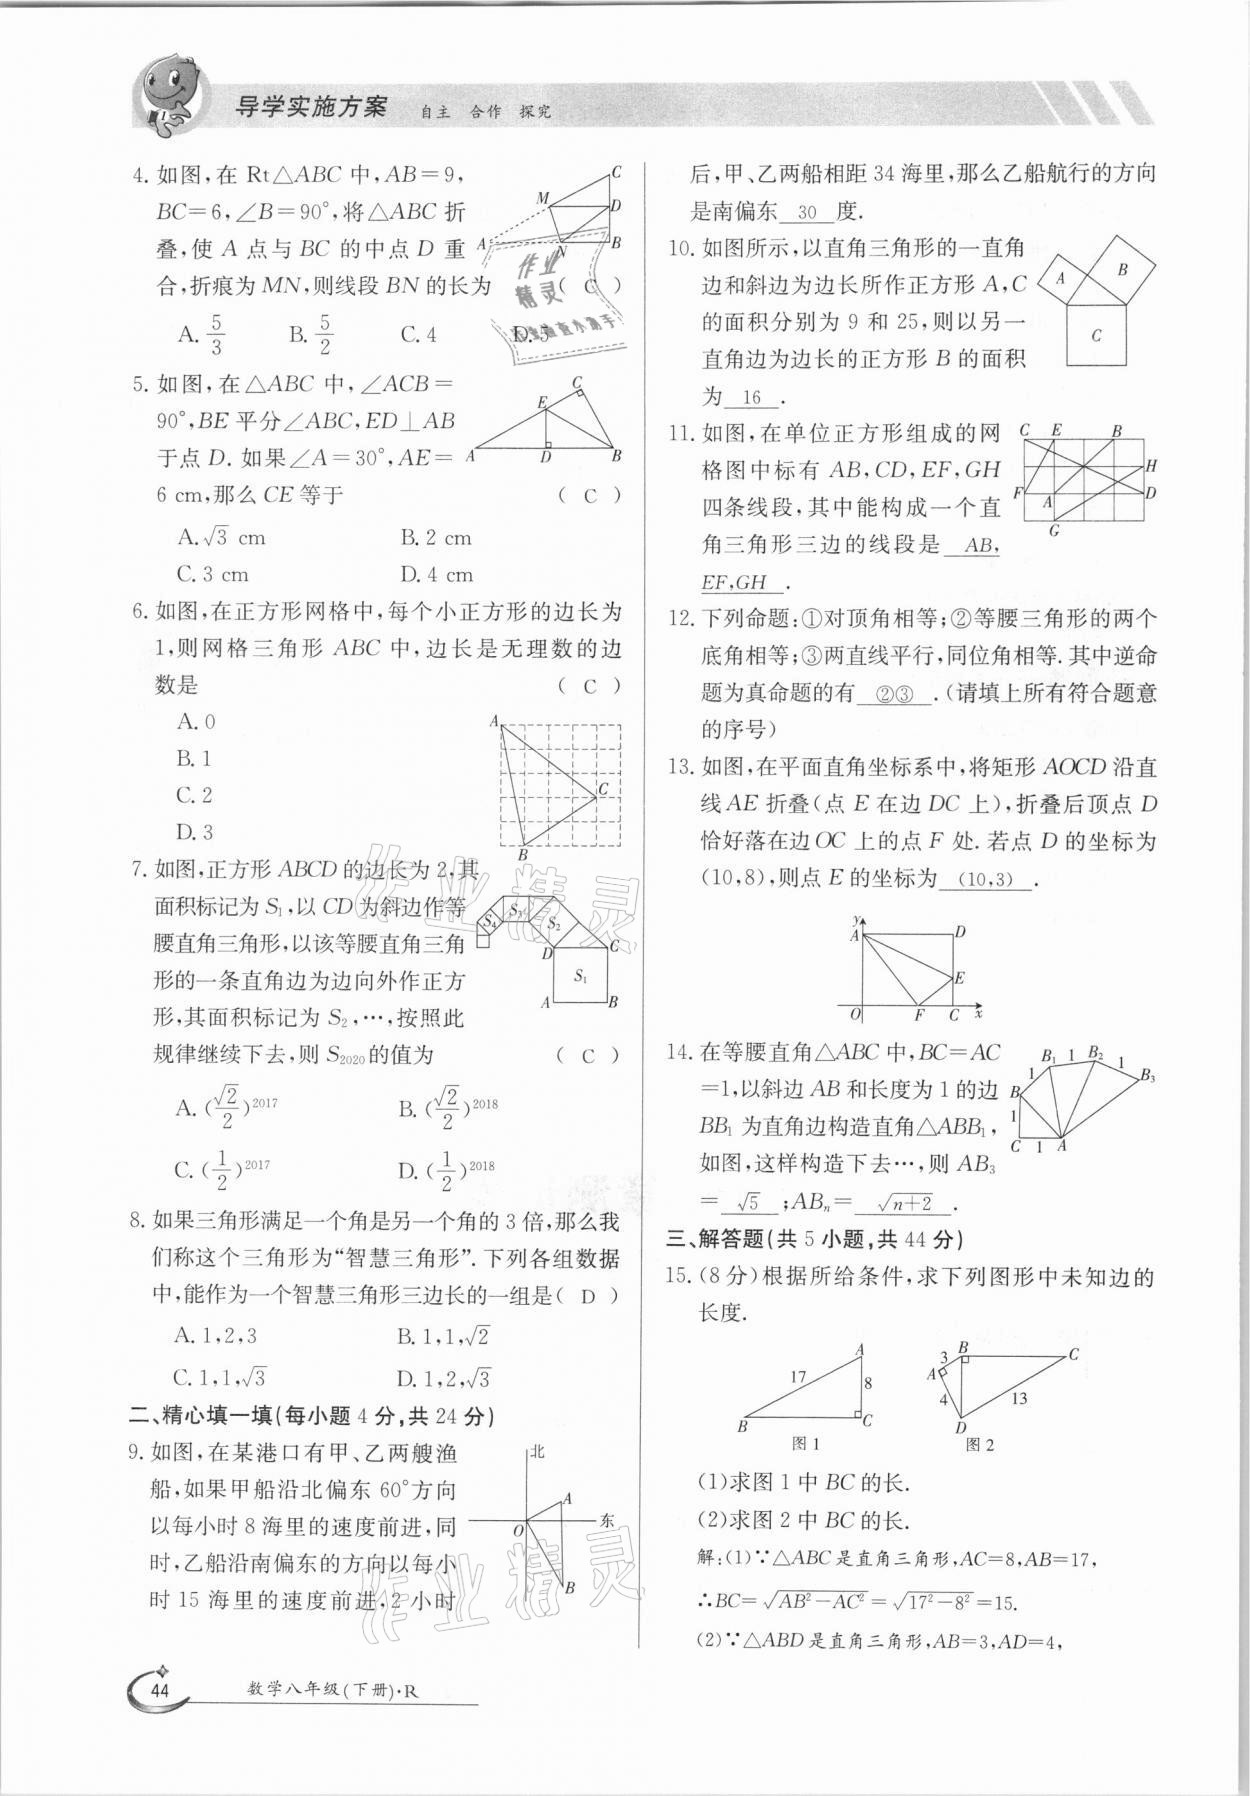 导学实施方案 自主 合作 探究
4. 如图,在 Rt△ABC 中,AB=9,
BC=6,∠B=90°,将△ABC 折
叠,使 A 点与 BC 的中点 D 重
合,折痕为 MN,则线段 BN 的长为 ( C )
A. 5/3 B. 5/2 C. 4 D. 5
C
M
D
A
N
B
作业
精灵
5. 如图,在△ABC 中,∠ACB=
90°,BE 平分∠ABC,ED⊥AB
于点 D. 如果∠A=30°,AE=
6 cm,那么 CE 等于 ( C )
A. √3 cm B. 2 cm
C. 3 cm D. 4 cm
C
E
A
D
B
6. 如图,在正方形网格中,每个小正方形的边长为
1,则网格三角形 ABC 中,边长是无理数的边
数是 ( C )
A. 0
B. 1
C. 2
D. 3
A
C
B
7. 如图,正方形 ABCD 的边长为 2,其
面积标记为 S₁,以 CD 为斜边作等
腰直角三角形,以该等腰直角三角
形的一条直角边为边向外作正方
形,其面积标记为 S₂,…,按照此
规律继续下去,则 S₂₀₂₀的值为 ( C )
A. (√2/2)²⁰¹⁷ B. (√2/2)²⁰¹⁸
C. (1/2)²⁰¹⁷ D. (1/2)²⁰¹⁸
S₄
S₃
S₂
D
C
S₁
A
B
作业精灵
8. 如果三角形满足一个角是另一个角的 3 倍,那么我
们称这个三角形为“智慧三角形”. 下列各组数据
中,能作为一个智慧三角形三边长的一组是( D )
A. 1,2,3 B. 1,1,√2
C. 1,1,√3 D. 1,2,√3
二、精心填一填(每小题 4 分,共 24 分)
9. 如图,在某港口有甲、乙两艘渔
船,如果甲船沿北偏东 60°方向
以每小时 8 海里的速度前进,同
时,乙船沿南偏东的方向以每小
时 15 海里的速度前进,2 小时
北
A
O
东
B
作业精灵
后,甲、乙两船相距 34 海里,那么乙船航行的方向
是南偏东 30 度.
10. 如图所示,以直角三角形的一直角
边和斜边为边长所作正方形 A,C
的面积分别为 9 和 25,则以另一
直角边为边长的正方形 B 的面积
为 16 .
A
B
C
11. 如图,在单位正方形组成的网
格图中标有 AB,CD,EF,GH
四条线段,其中能构成一个直
角三角形三边的线段是 AB,
EF,GH .
C E B
H
F A D
G
12. 下列命题:①对顶角相等;②等腰三角形的两个
底角相等;③两直线平行,同位角相等. 其中逆命
题为真命题的有 ②③ .(请填上所有符合题意
的序号)
13. 如图,在平面直角坐标系中,将矩形 AOCD 沿直
线 AE 折叠(点 E 在边 DC 上),折叠后顶点 D
恰好落在边 OC 上的点 F 处. 若点 D 的坐标为
(10,8),则点 E 的坐标为 (10,3) .
y
A
D
E
O
F
C
x
14. 在等腰直角△ABC 中,BC=AC
=1,以斜边 AB 和长度为 1 的边
BB₁ 为直角边构造直角△ABB₁,
如图,这样构造下去…,则 AB₃
= √5 ;ABₙ= √n+2 .
B₁ 1 B₂
1 1
B₃
B
1
C 1 A
三、解答题(共 5 小题,共 44 分)
15. (8 分)根据所给条件,求下列图形中未知边的
长度.
A
17
8
B
C
图 1
B
C
3
A
4
13
D
图 2
(1)求图 1 中 BC 的长.
(2)求图 2 中 BC 的长.
解:(1)∵△ABC 是直角三角形,AC=8,AB=17,
∴BC=√AB²−AC²=√17²−8²=15.
(2)∵△ABD 是直角三角形,AB=3,AD=4,
44 数学八年级(下册)·R